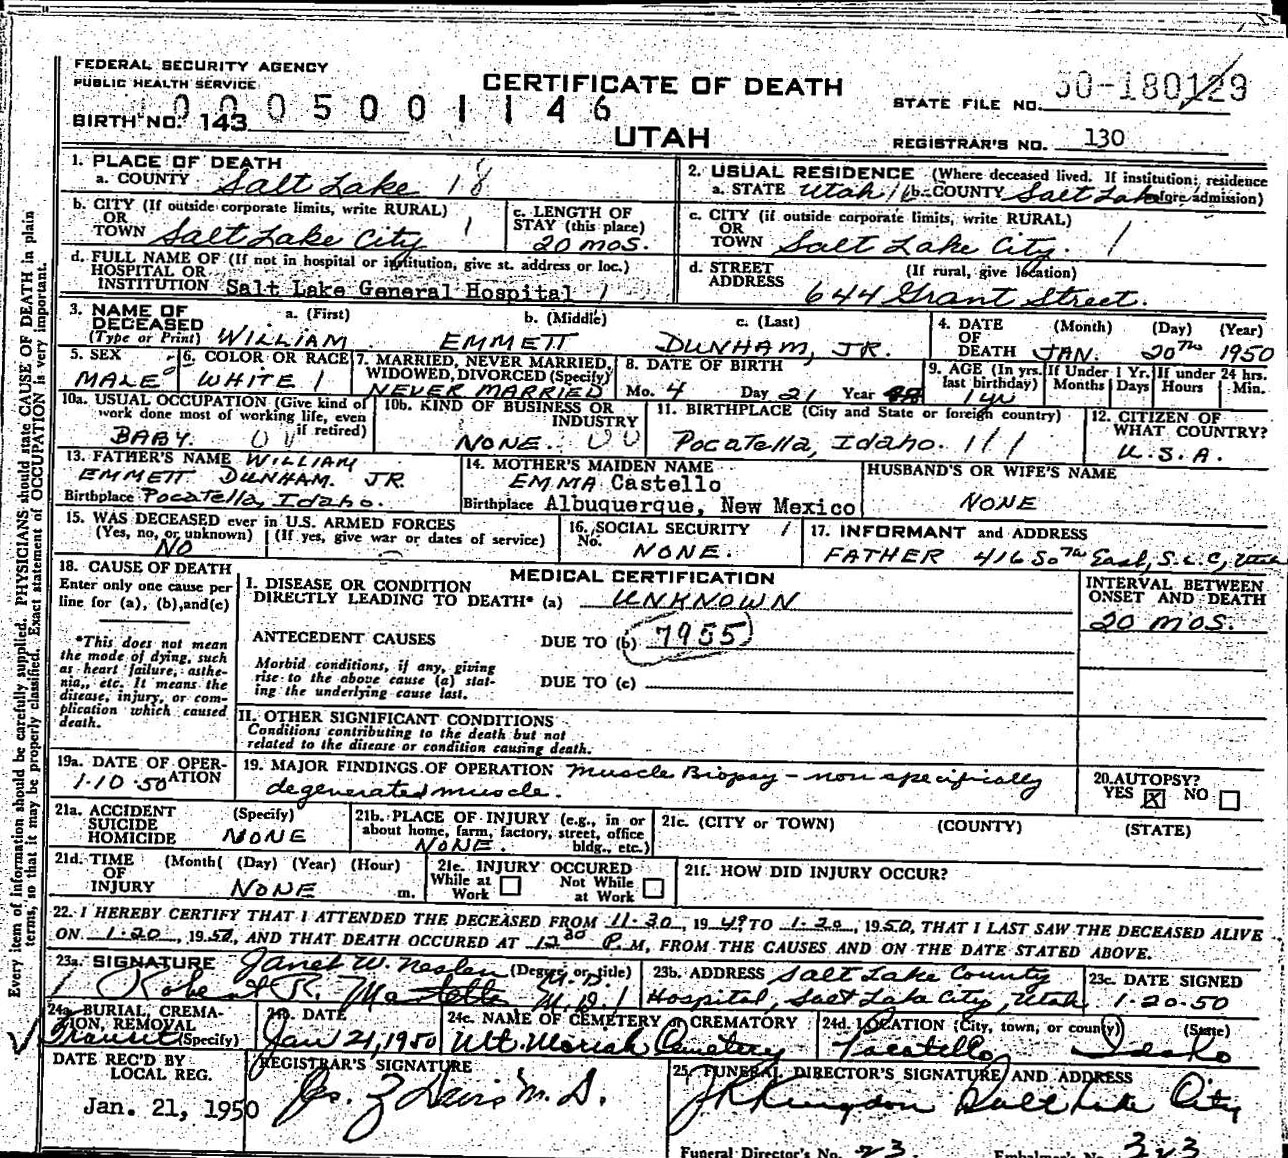 FEDERAL SECURITY AGENCY
PUBLIC HEALTH SERVICE
CERTIFICATE OF DEATH
UTAH
0005001146
BIRTH NO. 143
STATE FILE NO. 50-180129
REGISTRAR'S NO. 130
1. PLACE OF DEATH
a. COUNTY Salt Lake 18
b. CITY (If outside corporate limits, write RURAL)
OR
TOWN Salt Lake City 1
c. LENGTH OF
STAY (this place)
20 mos.
d. FULL NAME OF (If not in hospital or institution, give st. address or loc.)
HOSPITAL OR
INSTITUTION Salt Lake General Hospital 1
2. USUAL RESIDENCE (Where deceased lived. If institution; residence
before admission)
a. STATE Utah b. COUNTY Salt Lake
c. CITY (if outside corporate limits, write RURAL)
OR
TOWN Salt Lake City. 1
d. STREET (If rural, give location)
ADDRESS 644 Grant Street.
3. NAME OF DECEASED (Type or Print)
a. (First) b. (Middle) c. (Last)
WILLIAM EMMETT DUNHAM, JR.
4. DATE OF DEATH (Month) (Day) (Year)
JAN. 20th 1950
5. SEX
MALE
6. COLOR OR RACE
WHITE 1
7. MARRIED, NEVER MARRIED,
WIDOWED, DIVORCED (Specify)
NEVER MARRIED
8. DATE OF BIRTH
Mo. 4 Day 21 Year
9. AGE (In yrs. last birthday)
1 yr
If Under 1 Yr. Months Days
If under 24 hrs. Hours Min.
10a. USUAL OCCUPATION (Give kind of
work done most of working life, even
if retired)
BABY.
10b. KIND OF BUSINESS OR
INDUSTRY
NONE.
11. BIRTHPLACE (City and State or foreign country)
Pocatella, Idaho. 111
12. CITIZEN OF
WHAT COUNTRY?
U.S.A.
13. FATHER'S NAME WILLIAM
EMMETT DUNHAM. JR.
Birthplace Pocatella, Idaho.
14. MOTHER'S MAIDEN NAME
EMMA Castello
Birthplace Albuquerque, New Mexico
HUSBAND'S OR WIFE'S NAME
NONE
15. WAS DECEASED ever in U.S. ARMED FORCES
(Yes, no, or unknown) (If yes, give war or dates of service)
NO
16. SOCIAL SECURITY
No. NONE.
17. INFORMANT and ADDRESS
FATHER 416 So 7th East, S.L.C, Utah
18. CAUSE OF DEATH
Enter only one cause per
line for (a), (b), and (c)
*This does not mean
the mode of dying, such
as heart failure, asthe-
nia, etc. It means the
disease, injury, or com-
plication which caused
death.
MEDICAL CERTIFICATION
I. DISEASE OR CONDITION
DIRECTLY LEADING TO DEATH* (a) UNKNOWN
ANTECEDENT CAUSES DUE TO (b) 7955
Morbid conditions, if any, giving
rise to the above cause (a) stat-
ing the underlying cause last.
DUE TO (c)
II. OTHER SIGNIFICANT CONDITIONS
Conditions contributing to the death but not
related to the disease or condition causing death.
INTERVAL BETWEEN
ONSET AND DEATH
20 mos.
19a. DATE OF OPER-
ATION
1-10-50
19. MAJOR FINDINGS OF OPERATION Muscle Biopsy - non specifically
degenerated muscle.
20. AUTOPSY?
YES X NO
21a. ACCIDENT
SUICIDE
HOMICIDE
(Specify)
NONE
21b. PLACE OF INJURY (e.g., in or
about home, farm, factory, street, office
bldg., etc.)
NONE.
21c. (CITY or TOWN) (COUNTY) (STATE)
21d. TIME OF INJURY (Month) (Day) (Year) (Hour)
NONE m.
21e. INJURY OCCURED
While at Work Not While at Work
21f. HOW DID INJURY OCCUR?
22. I HEREBY CERTIFY THAT I ATTENDED THE DECEASED FROM 11-30, 1949 TO 1-20, 1950, THAT I LAST SAW THE DECEASED ALIVE
ON 1-20, 1950, AND THAT DEATH OCCURED AT 12 P M, FROM THE CAUSES AND ON THE DATE STATED ABOVE.
23a. SIGNATURE (Degree or title)
Janet W. Neslen M.D.
Robert R. M.D.
23b. ADDRESS Salt Lake County
Hospital, Salt Lake City, Utah
23c. DATE SIGNED
1-20-50
24a. BURIAL, CREMA-
TION, REMOVAL
(Specify)
Transit
24b. DATE
Jan 21, 1950
24c. NAME OF CEMETERY or CREMATORY
Mt. Moriah Cemetery
24d. LOCATION (City, town, or county) (State)
Pocatello, Idaho
DATE REC'D BY
LOCAL REG.
Jan. 21, 1950
REGISTRAR'S SIGNATURE
Z Davis M.D.
25. FUNERAL DIRECTOR'S SIGNATURE AND ADDRESS
Salt Lake City
Funeral Director's No. 23. Embalmer's No. 323
Every item of information should be carefully supplied. PHYSICIANS should state CAUSE OF DEATH in plain
terms, so that it may be properly classified. Exact statement of OCCUPATION is very important.